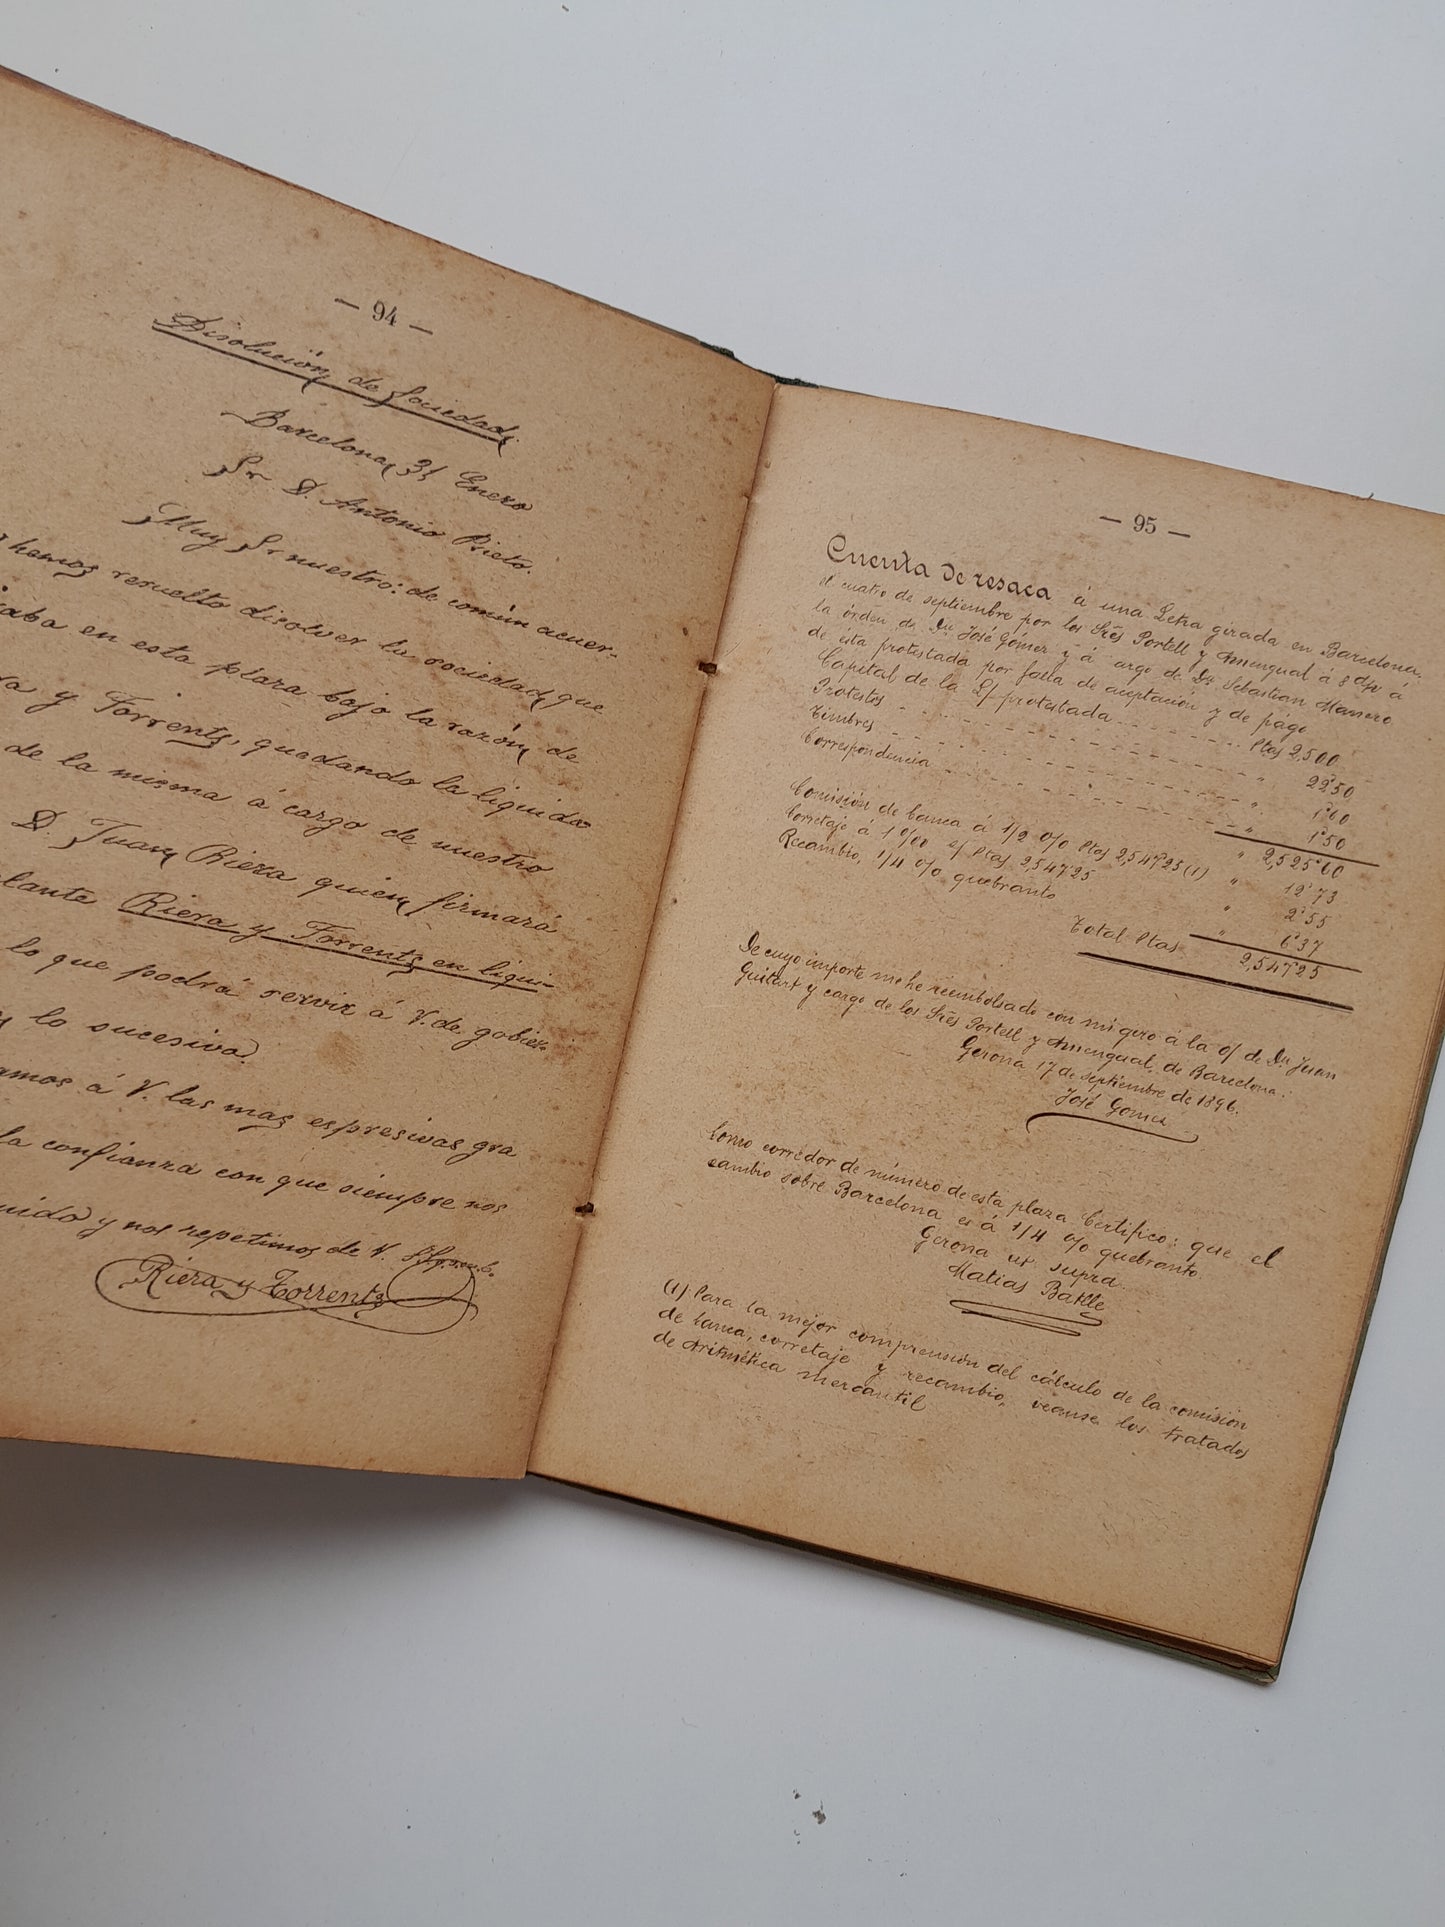 — 94 —
Disolución de Sociedad.
Barcelona 31 Enero
Sr. D. Antonio Prieto.
Muy Sr nuestro: de común acuer-
hemos resuelto disolver la sociedad que
en esta plaza bajo la razón de
y Torrents, quedando la liquida
de la misma á cargo de nuestro
D. Juan Riera quien firmará
Riera y Torrents en liqui-
lo que podrá servir á V. de gobier-
lo sucesivo.
á V. las mas espresivas gra
la confianza con que siempre nos
y nos repetimos de V.
Riera y Torrents
— 95 —
Cuenta de resaca á una Letra girada en Barcelona,
el cuatro de septiembre por los Srēs Portell y Amengual á 8 d/v á
la órden de Dn José Gómez y á cargo de Dn Sebastian Manero
de esta protestada por falta de aceptación y de pago
Capital de la L/ protestada Ptas 2,500
Protestos " 22'50
Timbres " 1'60
Correspondencia " 1'50
" 2,525'60
Comisión de banca á 1/2 0/0 Ptas 2,547'25 (1) " 12'73
Corretaje á 1 0/00 s/ Ptas 2,547'25 " 2'55
Recambio, 1/4 0/0 quebranto " 6'37
Total Ptas 2,547'25
De cuyo importe me he reembolsado con mi giro á la o/ de Dn Juan
Guitart y cargo de los Srēs Portell y Amengual, de Barcelona.
Gerona 17 de septiembre de 1896.
José Gomez
Como corredor de número de esta plaza Certifico: que el
cambio sobre Barcelona es á 1/4 0/0 quebranto.
Gerona ut supra.
Matias Batlle
(1) Para la mejor comprensión del cálculo de la comisión
de banca, corretaje y recambio, veanse los tratados
de Aritmética mercantil